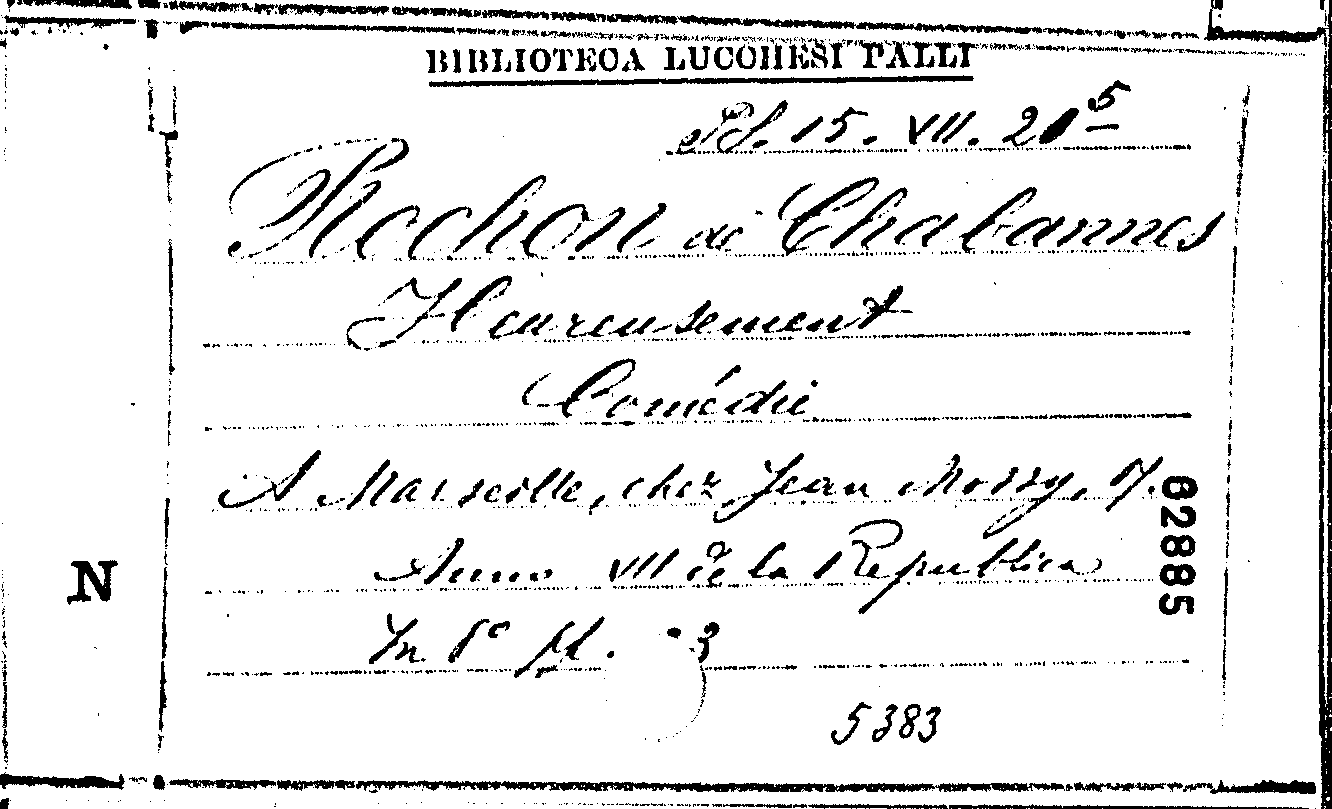 BIBLIOTECA LUCCHESI PALLI
Pl. 15. VII. 20 5
Rochon de Chabannes
Heureusement
Comédie
A Marseille, chez Jean Mossy, 17.
Anno VII de la Republica
In 8º pp. 23
5383
N
02885